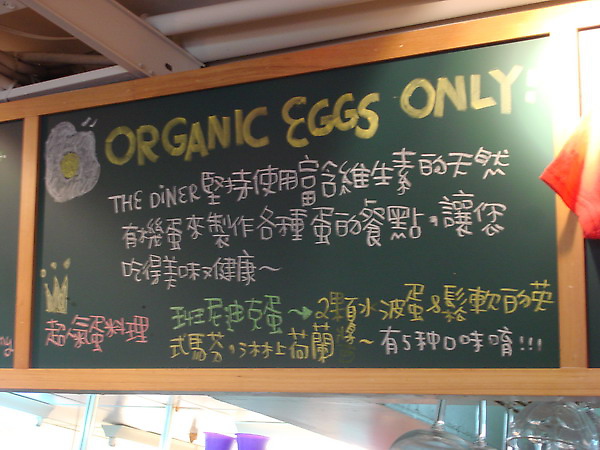 ORGANIC EGGS ONLY!
THE DINER 堅持使用富含維生素的天然
有機蛋來製作各種蛋的餐點,讓您
吃得美味又健康~
超人氣蛋料理
班尼迪克蛋→2顆水波蛋&鬆軟的英
式馬芬,沐上荷蘭醬~有5种口味唷!!!